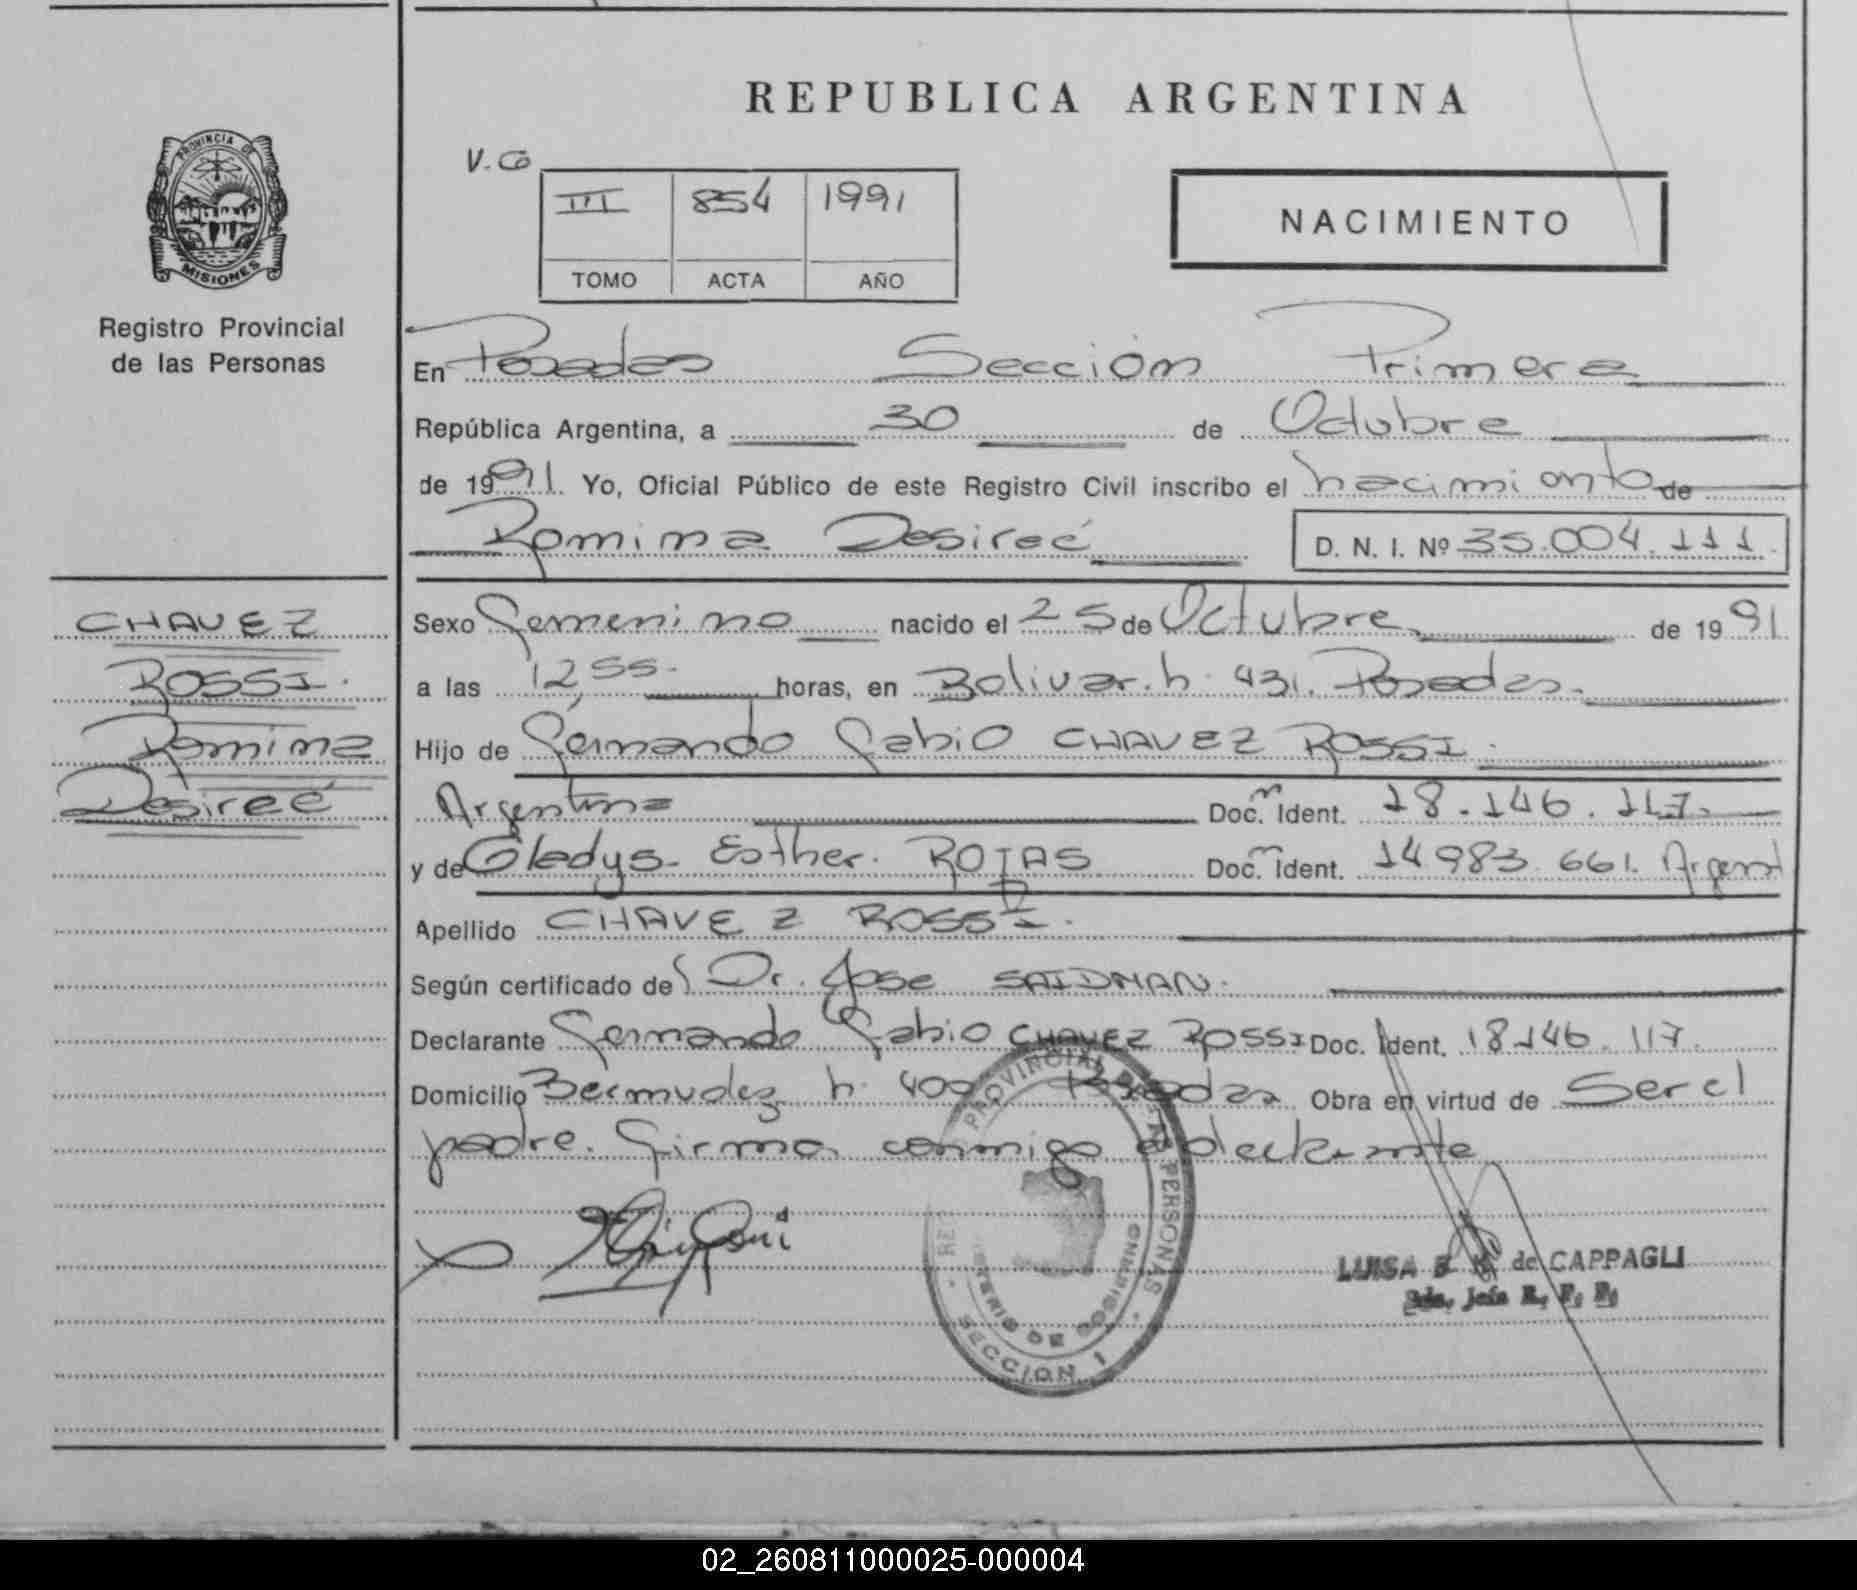 REPUBLICA ARGENTINA
V. Co
III 854 1991
TOMO ACTA AÑO
NACIMIENTO
PROVINCIA DE MISIONES
Registro Provincial
de las Personas
En Posadas Sección Primera
República Argentina, a 30 de Octubre
de 1991. Yo, Oficial Público de este Registro Civil inscribo el nacimiento de
Romina Desireé D. N. I. Nº 35.004.111.
CHAVEZ
ROSSI.
Romina
Desireé
Sexo Femenino nacido el 25 de Octubre de 1991.
a las 12,55. horas, en Bolivar. n. 431. Posadas.
Hijo de Fernando Fabio CHAVEZ ROSSI.
Argentina Doc. Ident. 18.146.117.
y de Gladys. Esther. ROJAS Doc. Ident. 14983.661. Argent
Apellido CHAVEZ ROSSI.
Según certificado de Dr. Jose SAIDMAN.
Declarante Fernando Fabio CHAVEZ ROSSI Doc. Ident. 18146.117.
Domicilio Bermudez n. 400 Posadas Obra en virtud de Ser el
padre. Firma conmigo el declarante
PROVINCIAL DE LAS PERSONAS
SECCION 1
LUISA de CAPPAGLI
02_260811000025-000004